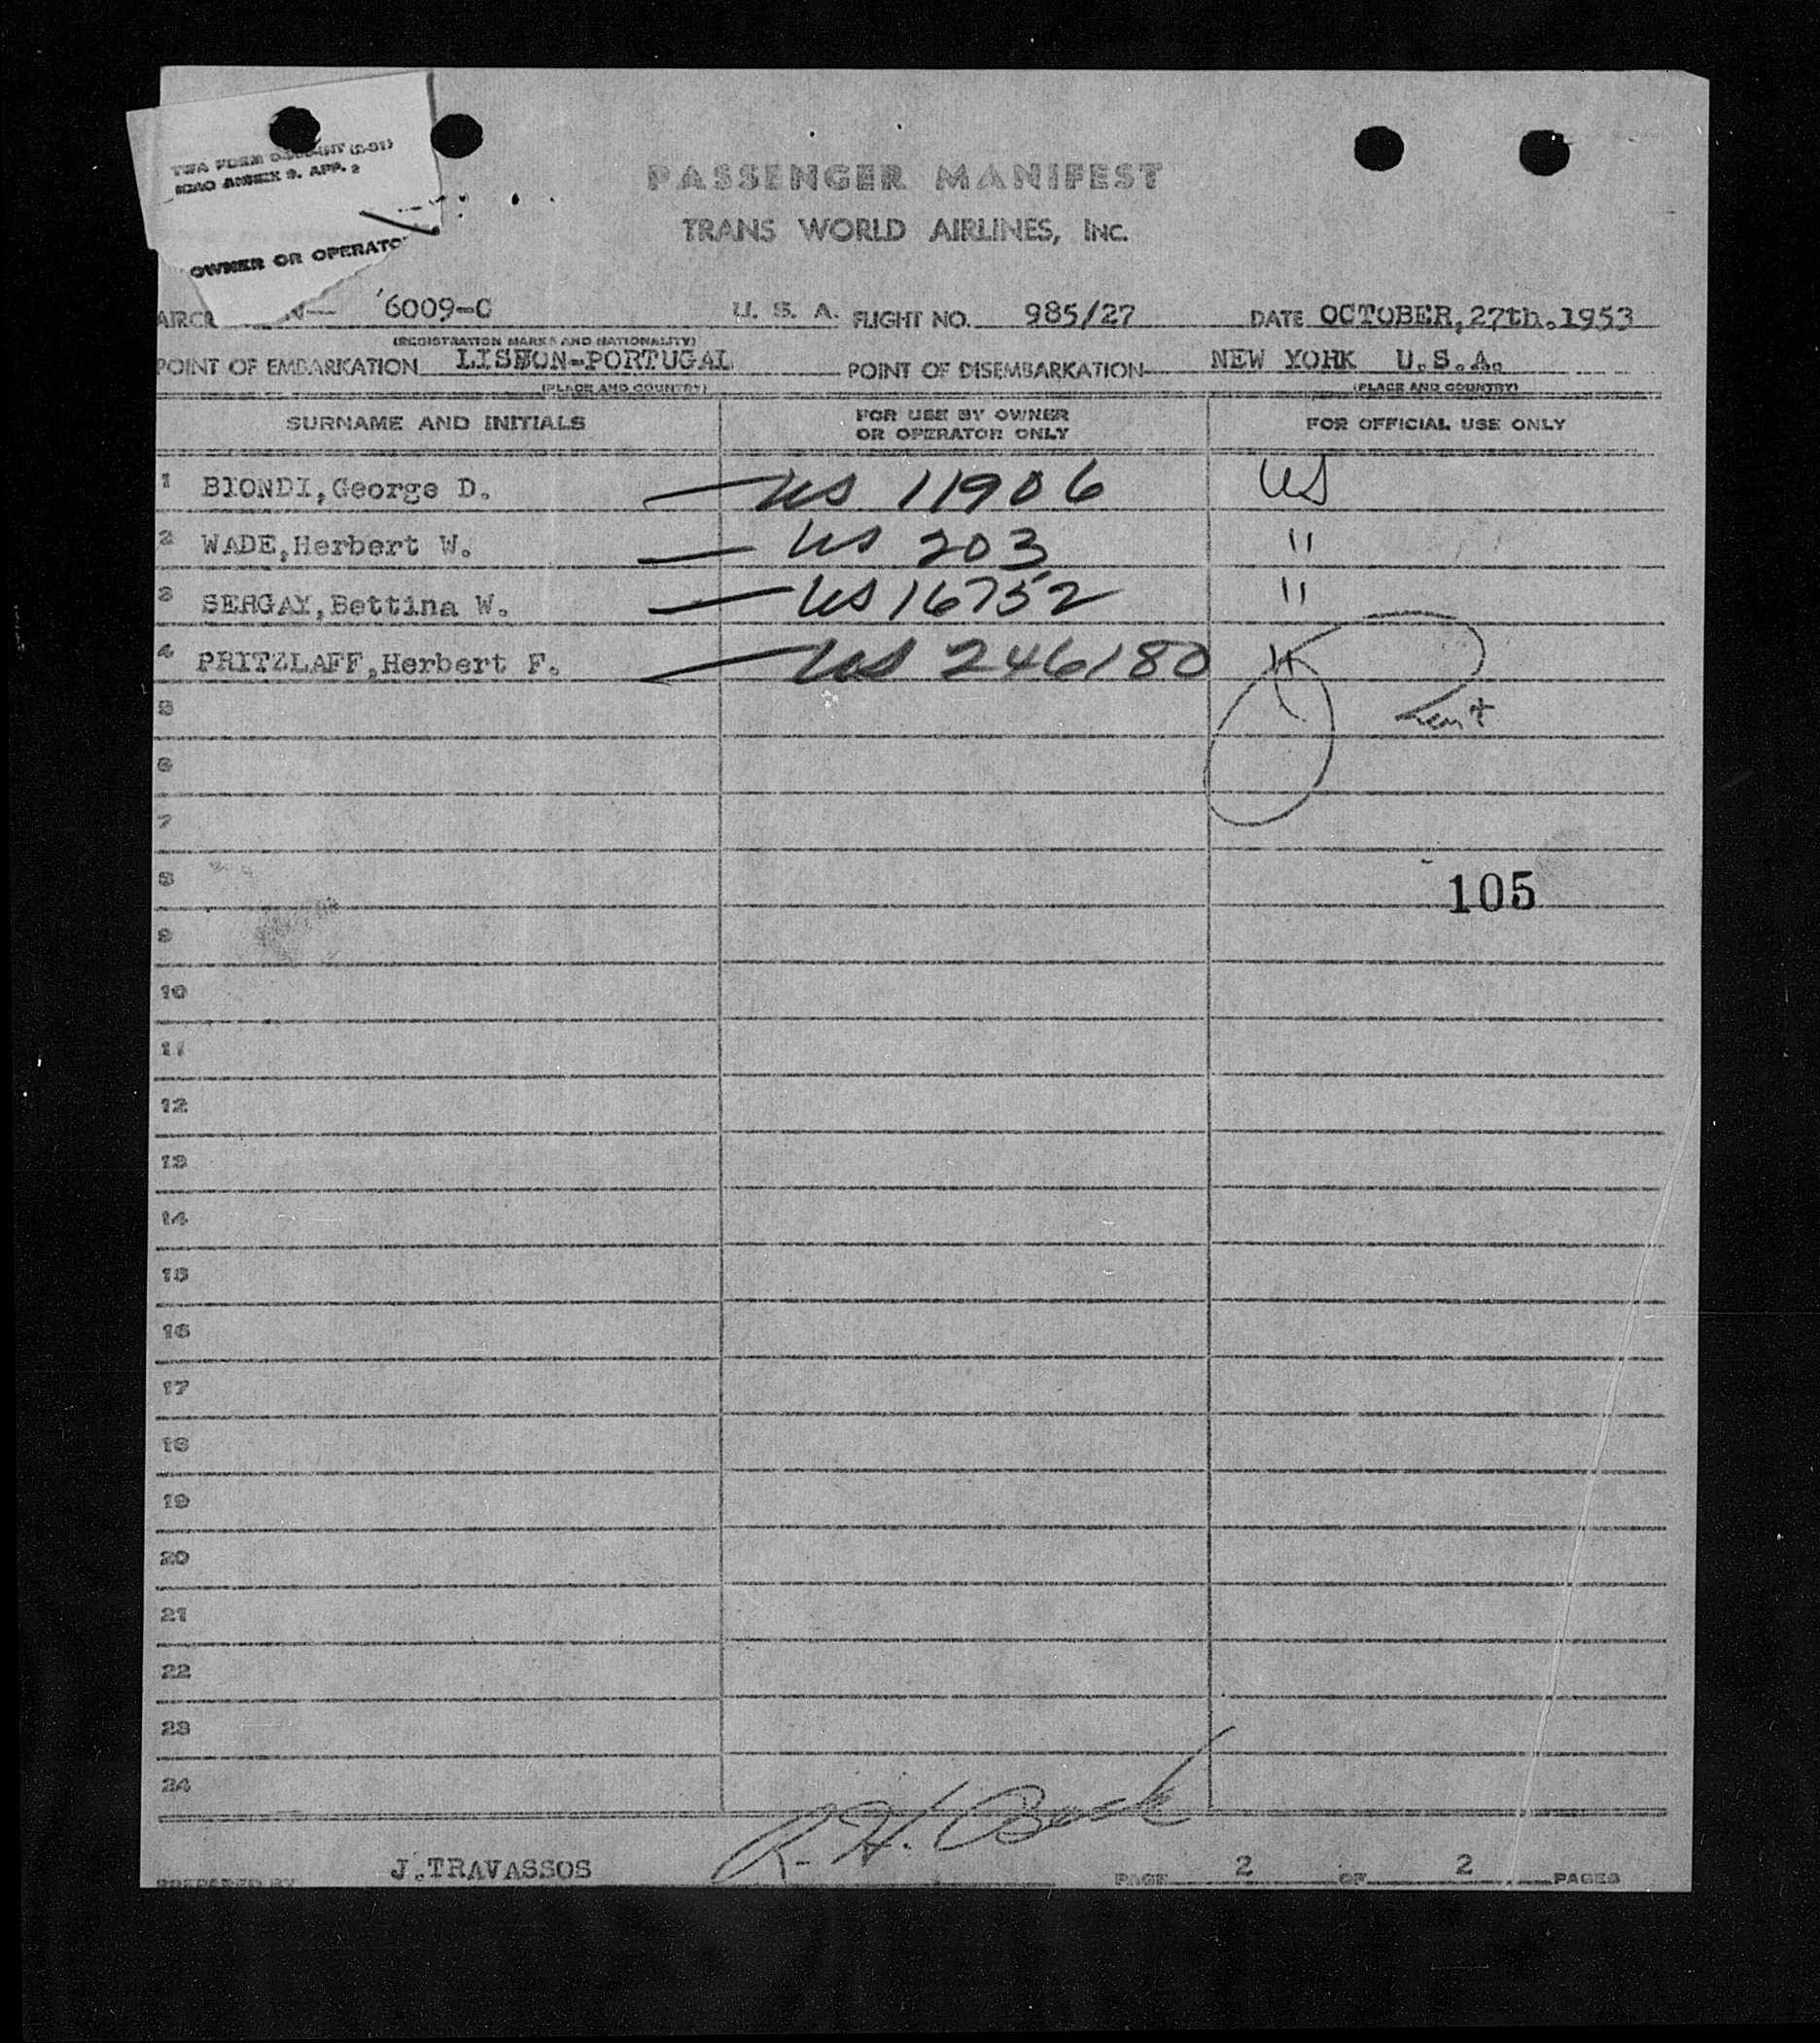 TWA FORM (2-51)
ICAO ANNEX 9. APP. 2
OWNER OR OPERATO
PASSENGER MANIFEST
TRANS WORLD AIRLINES, INC.
AIRCR N— 6009-C U. S. A. FLIGHT NO. 985/27 DATE OCTOBER,27th.1953
(REGISTRATION MARKS AND NATIONALITY)
POINT OF EMBARKATION LISBON-PORTUGAL POINT OF DISEMBARKATION NEW YORK U.S.A.
(PLACE AND COUNTRY) (PLACE AND COUNTRY)
SURNAME AND INITIALS FOR USE BY OWNER OR OPERATOR ONLY FOR OFFICIAL USE ONLY
1 BIONDI,George D. — US 11906 US
2 WADE,Herbert W. — US 203 "
3 SERGAY,Bettina W. — US 16752 "
4 PRITZLAFF,Herbert F. — US 246180 "
5
6
7
8 105
9
10
11
12
13
14
15
16
17
18
19
20
21
22
23
24
PREPARED BY J.TRAVASSOS R. H. PAGE 2 OF 2 PAGES